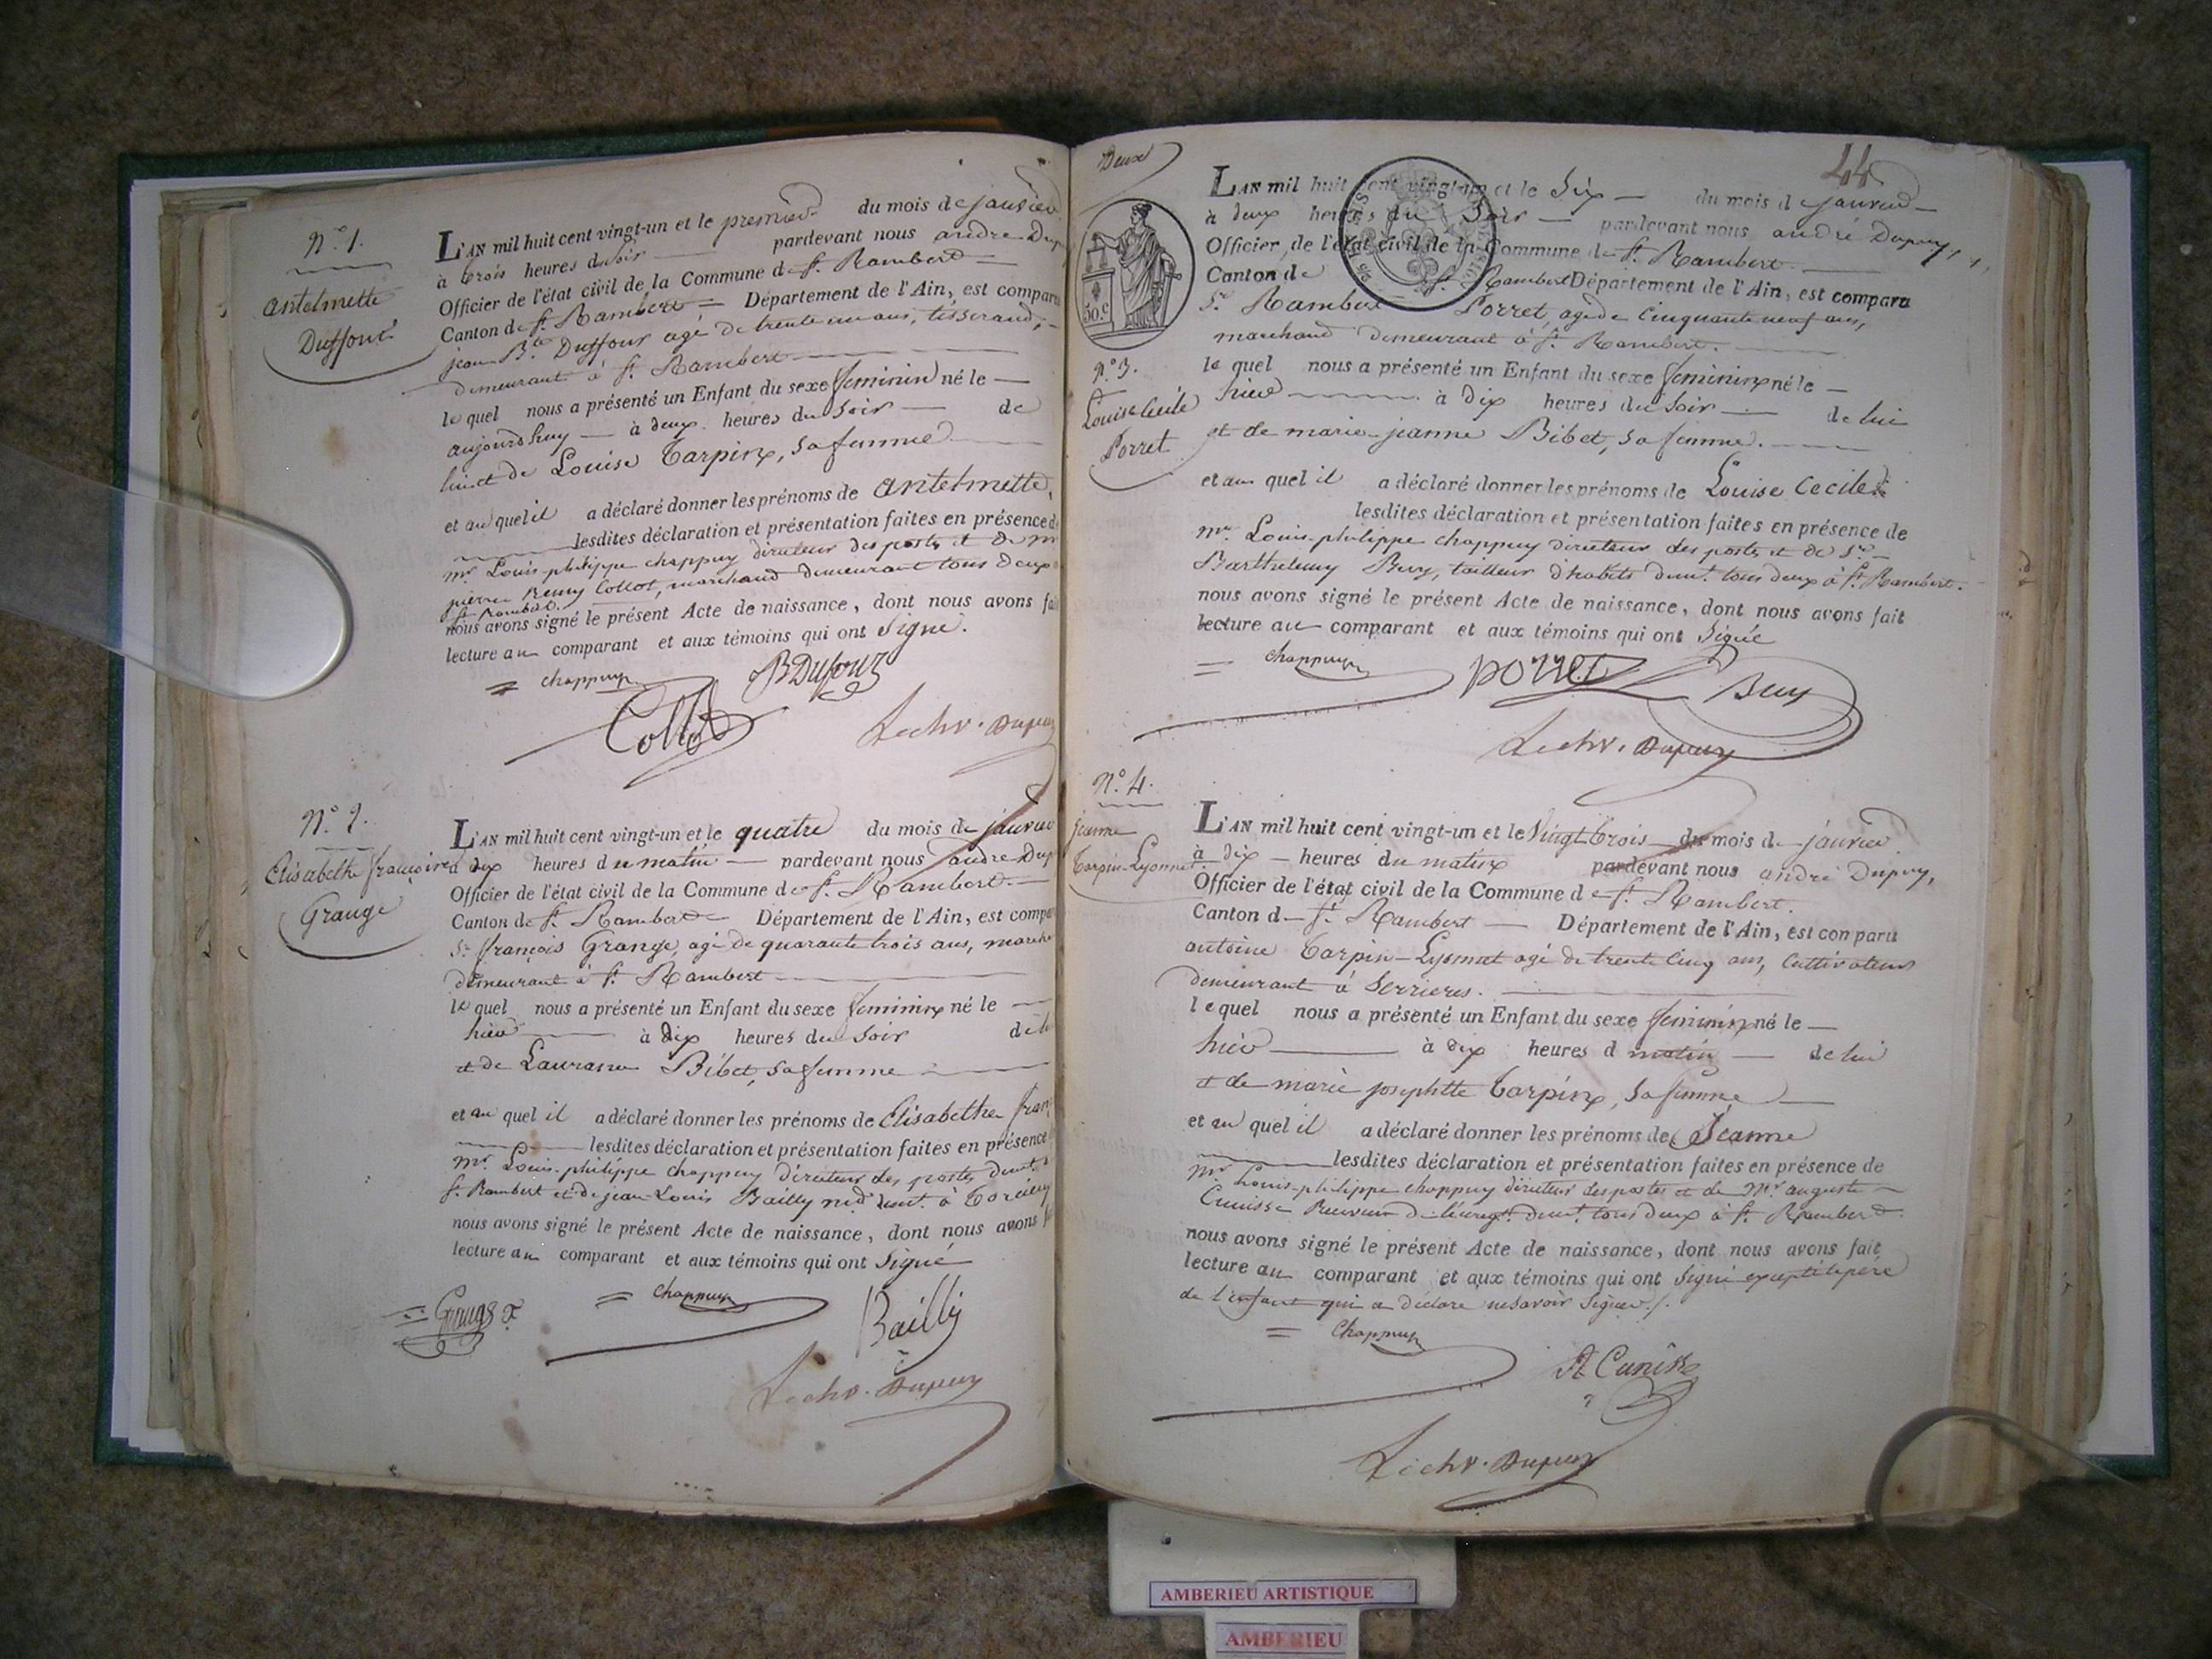 N.° 1.
antelmette
Duffour
L'AN mil huit cent vingt-un et le premier du mois de janvier
à trois heures du soir pardevant nous andré Dup
Officier de l'état civil de la Commune de St. Rambert
Canton de St. Rambert Département de l'Ain, est comparu
jean Bte Duffour agé de trente un ans, tisserand,
demeurant à St. Rambert
lequel nous a présenté un Enfant du sexe feminin né le
aujourdhuy à deux heures du soir de
lui et de Louise Tarpin, sa femme
et au quel il a déclaré donner les prénoms de antelmette,
lesdites déclaration et présentation faites en présence de
mr. Louis-philippe chappuy directeur des postes et de mr
pierre Remy Collot, marchand demeurant tous deux
St. Rambert.
nous avons signé le présent Acte de naissance, dont nous avons fai
lecture au comparant et aux témoins qui ont signé.
chappuy
B Dufour
Collot
Le chr. Dupuy
N.° 2.
Elisabethe françoise
Grange
L'AN mil huit cent vingt-un et le quatre du mois de janvier
à dix heures du matin pardevant nous andré Dup
Officier de l'état civil de la Commune de St. Rambert
Canton de St. Rambert Département de l'Ain, est compar
Sr. françois Grange, agé de quarante trois ans, march
demeurant à St. Rambert
lequel nous a présenté un Enfant du sexe feminin né le
hier à dix heures du soir de l
et de Laurance Bibet, sa femme
et au quel il a déclaré donner les prénoms de Elisabethe fran
lesdites déclaration et présentation faites en présence
mr. Louis-philippe chappuy directeur des postes demt. à
St. Rambert et de jean-Louis Bailly md demt. à Torcieu
nous avons signé le présent Acte de naissance, dont nous avons f
lecture au comparant et aux témoins qui ont signé
Grange
chappuy
Bailly
Le chr. Dupuy
Deux
44
50 c
N.° 3.
Louise Cecile
Porret
L'AN mil huit cent vingt-un et le six du mois de janvier
à deux heures du soir pardevant nous andré Dupuy,
Officier de l'état civil de la Commune de St. Rambert
Canton de St. Rambert Département de l'Ain, est comparu
Sr. Rambert Porret, agé de cinquante neuf ans,
marchand demeurant à St. Rambert.
lequel nous a présenté un Enfant du sexe feminin né le
hier à dix heures du soir de lui
et de marie-jeanne Bibet, sa femme.
et au quel il a déclaré donner les prénoms de Louise Cecile
lesdites déclaration et présentation faites en présence de
mr. Louis-philippe chappuy directeur des postes et de Sr.
Barthelemy Buy, tailleur d'habits demt. tous deux à St. Rambert.
nous avons signé le présent Acte de naissance, dont nous avons fait
lecture au comparant et aux témoins qui ont signé
chappuy
porret
Buy
Le chr. Dupuy
N.° 4.
jeanne
Tarpin-Lyonnet
L'AN mil huit cent vingt-un et le vingt trois du mois de janvier
à dix heures du matin pardevant nous andré Dupuy,
Officier de l'état civil de la Commune de St. Rambert.
Canton d St. Rambert Département de l'Ain, est comparu
antoine Tarpin-Lyonnet agé de trente cinq ans, cultivateur
demeurant à Serrieres.
lequel nous a présenté un Enfant du sexe feminin né le
hier à dix heures d matin de lui
et de marie josephtte Tarpin, sa femme
et au quel il a déclaré donner les prénoms de Jeanne
lesdites déclaration et présentation faites en présence de
mr. Louis-philippe chappuy directeur des postes et de Mr. auguste
Cunisse Receveur de l'énregt. demt. tous deux à St. Rambert
nous avons signé le présent Acte de naissance, dont nous avons fait
lecture au comparant et aux témoins qui ont signé excepté le père
de l'enfant qui a déclaré ne savoir signer./.
Chappuy
A Cunisse
Le chr. Dupuy
AMBERIEU ARTISTIQUE
AMBERIEU